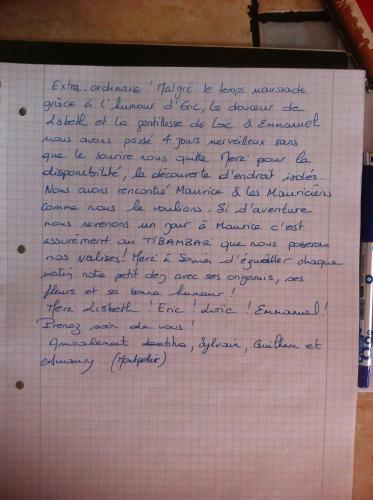 Extra-ordinaire ! Malgré le temps maussade
grâce à l'humour d'Eric, la douceur de
Lisbeth et la gentillesse de Loic & Emmanuel
nous avons passé 4 jours merveilleux sans
que le sourire nous quitte. Merci pour la
disponibilité, la découverte d'endroit isolés...
Nous avons rencontré Maurice & les Mauriciens
comme nous le voulions. Si d'aventure
nous revenons un jour à Maurice c'est
assurément au TIBAMBAR que nous poserons
nos valises ! Merci à Sonia, d'égueiller chaque
matin notre petit dej avec ses origamis, ses
fleurs et sa bonne humeur !
Merci Lisbeth ! Eric ! Loïc ! Emmanuel !
Prenez soin de vous !
Amicalement Laetitia, Sylvain, Guilhem et
Amaury... (Montpellier)